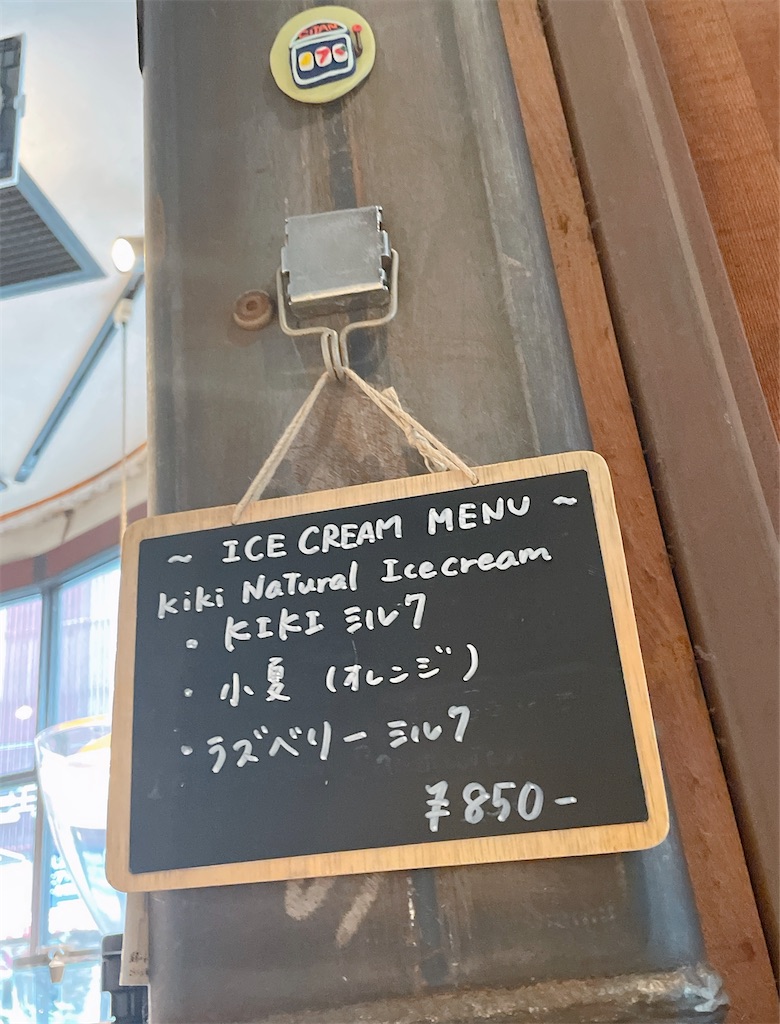 CITAN
~ ICE CREAM MENU ~
kiki NaTural Icecream
・KIKI ミルク
・小夏 (オレンジ)
・ラズベリー ミルク
¥850-